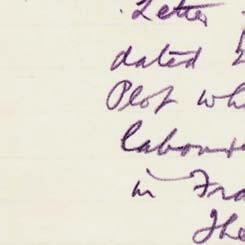 Letter
dated
Plot wh
labour
in Fra
The